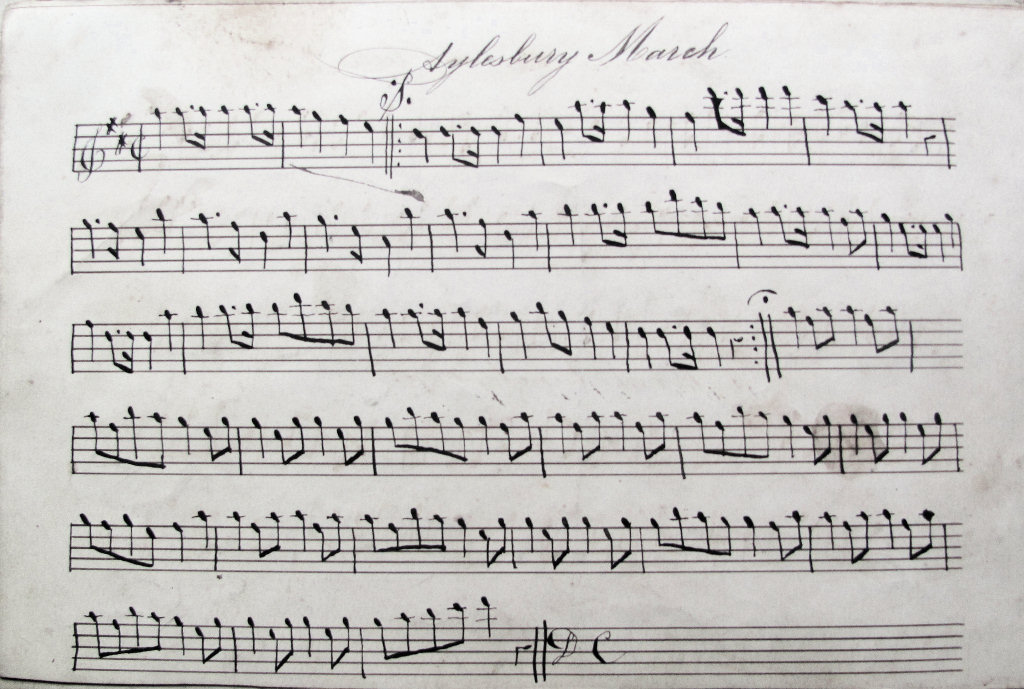 Aylesbury March
:S:
D C